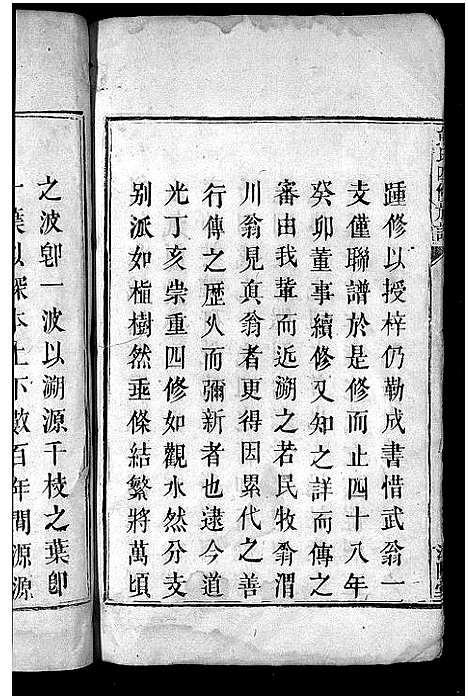 踵修以授梓仍勒成書惜武翁一
支僅聯譜於是修而止四十八年
癸卯董事續修又知之詳而傳之
審由我軰而近溯之若民牧翁渭
川翁見眞翁者更得因累代之善
行傳之歷久而彌新者也逮今道
光丁亥崇重四修如觀水然分支
别派如植樹然垂條結繁將萬頃
之波卽一波以溯源千枝之葉卽
一葉以探本上下數百年間源源
氏四修族譜